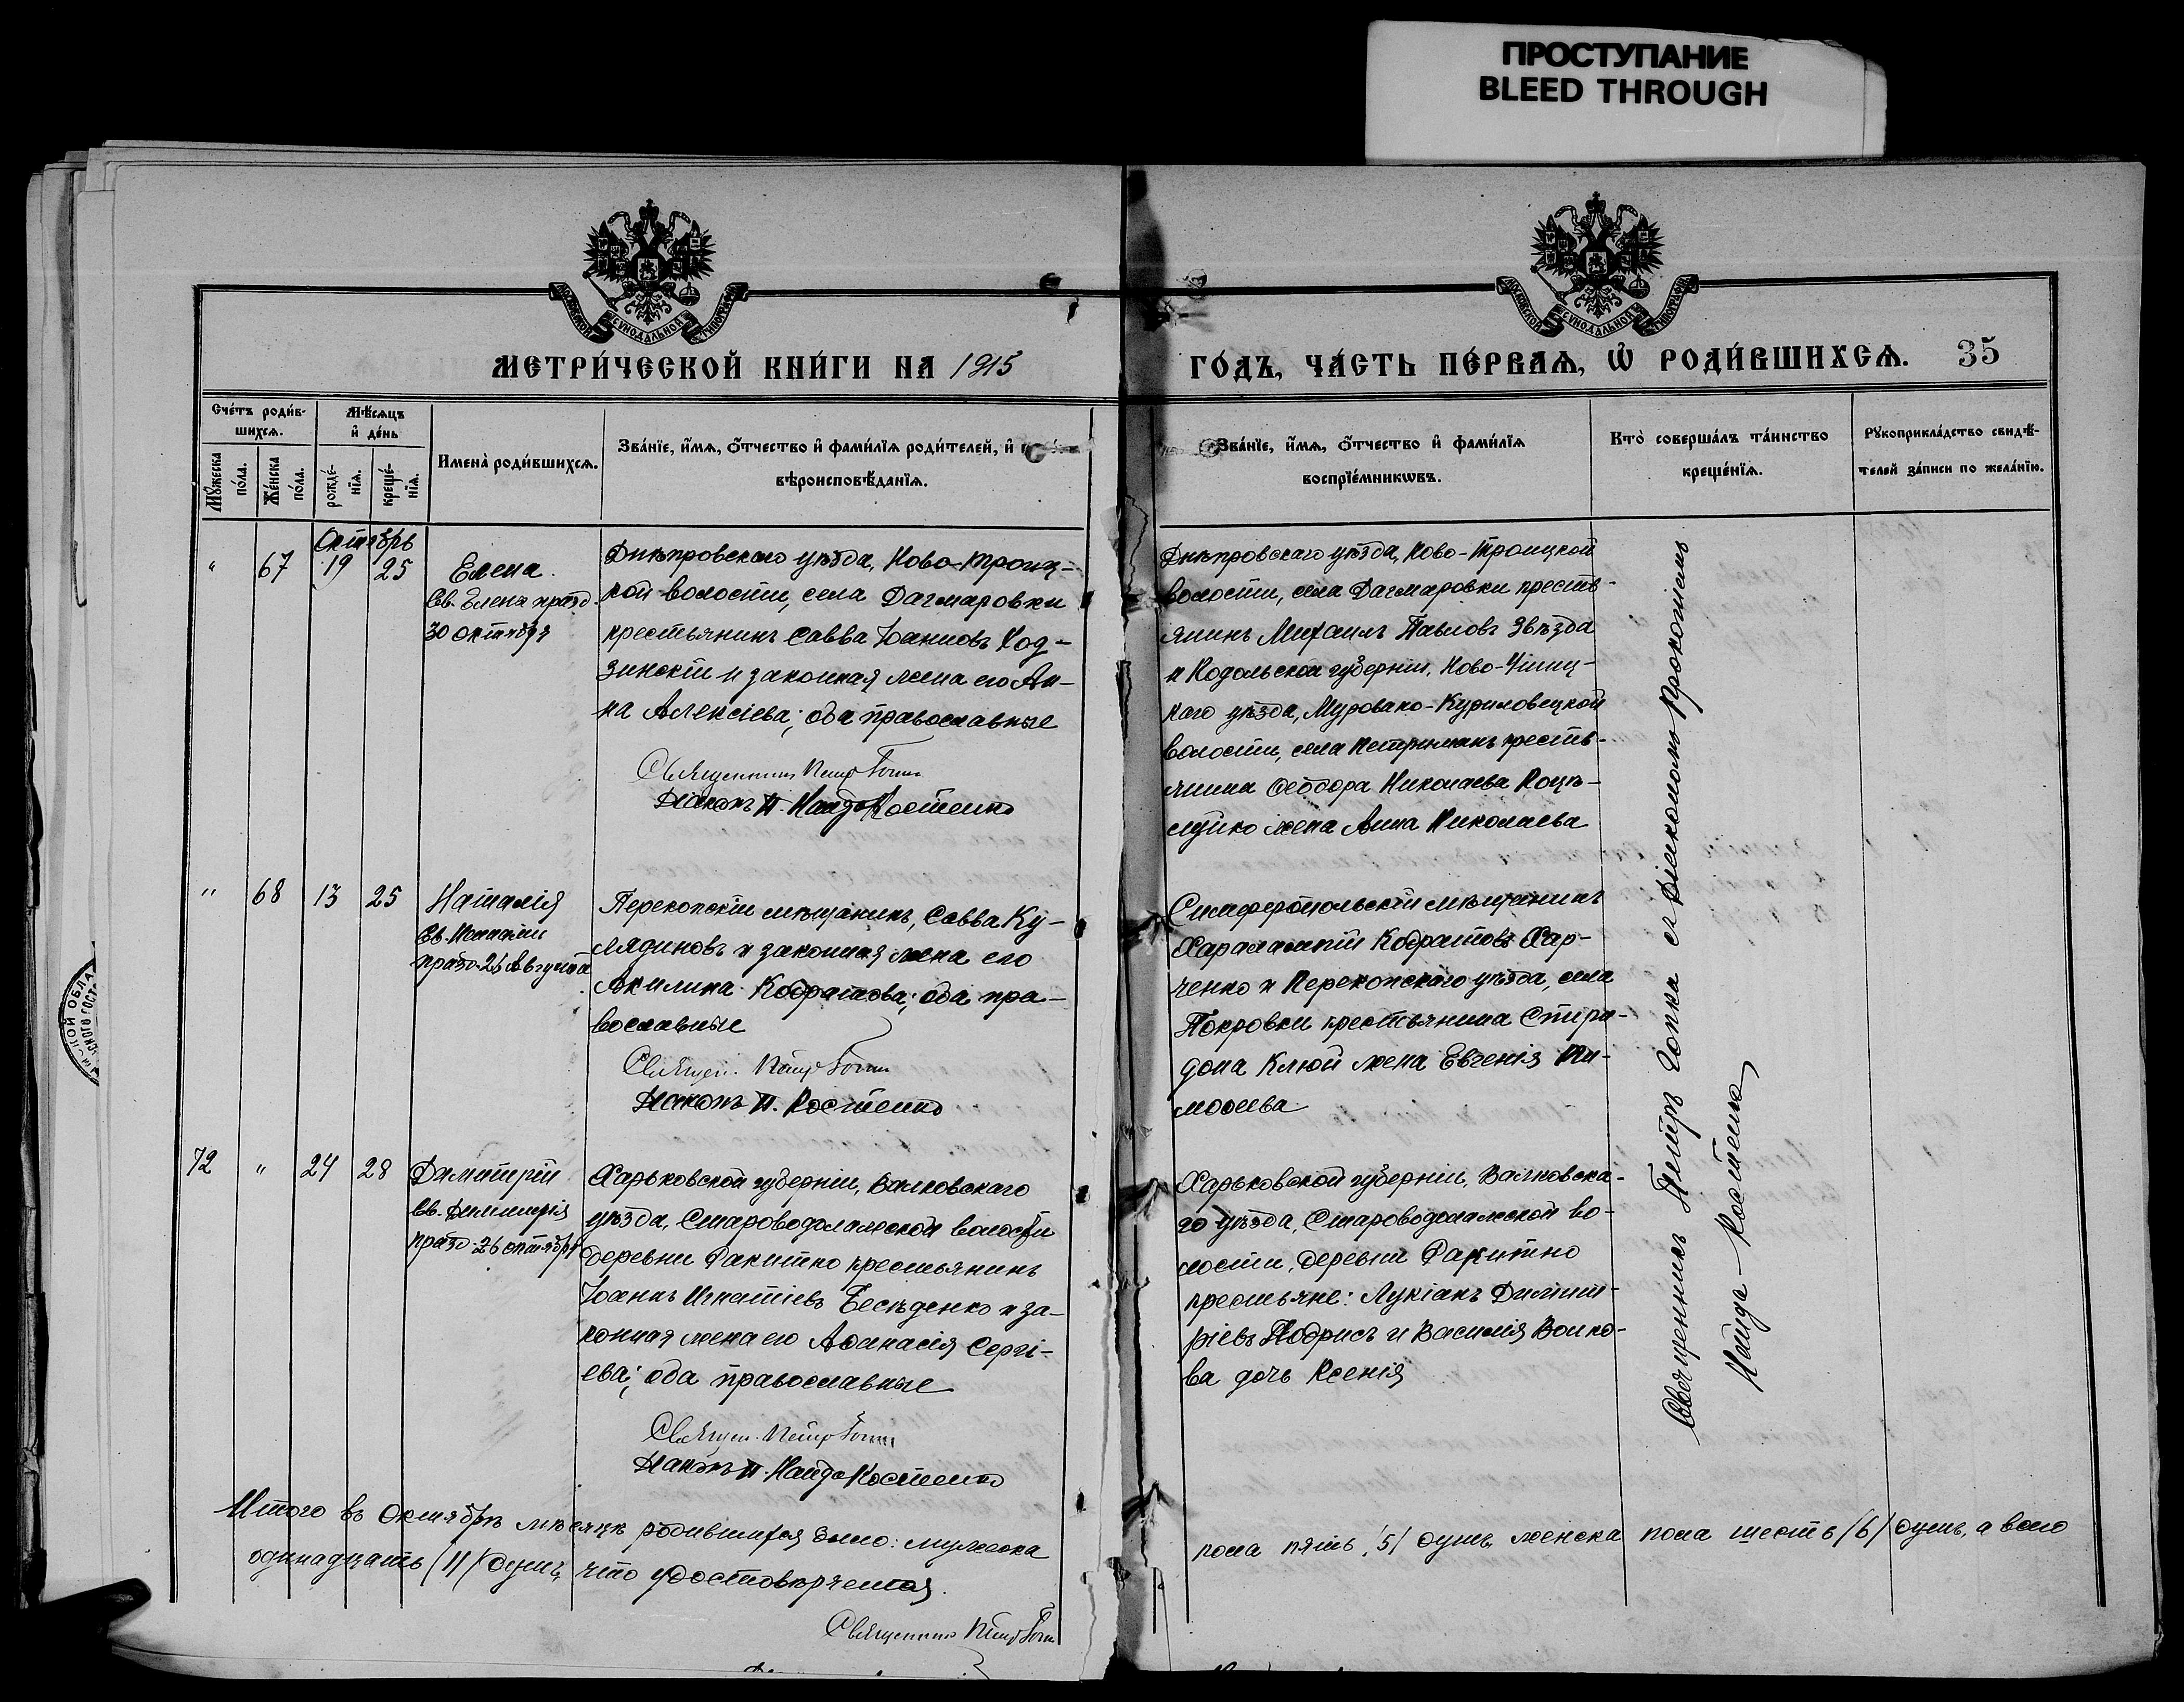 ПРОСТУПАНИЕ
BLEED THROUGH
МОСКОВСКОЙ СѴНОДАЛЬНОЙ ТИПОГРАФІИ
МОСКОВСКОЙ СѴНОДАЛЬНОЙ ТИПОГРАФІИ
МЕТРИ́ЧЕСКОЙ КНИ́ГИ НА 1915
ГО́ДЪ, ЧА́СТЬ ПЕ́РВАѦ, Ѡ҆ РОДИ́ВШИХСѦ. 35
Сче́тъ роди́в-
шихсѧ.
Мꙋ́жеска
по́ла.
Же́нска
по́ла.
Мѣ́сѧцъ
и҆ де́нь
рожде́-
нїѧ.
креще́-
нїѧ.
Имена̀ роди́вшихсѧ.
Зва́нїе, и҆́мѧ, ѻ҆́тчество и҆ фами́лїѧ роди́телей, и҆
вѣроисповѣ́данїѧ.
Зва́нїе, и҆́мѧ, ѻ҆́тчество и҆ фами́лїѧ
воспрїе́мникѡвъ.
Кто̀ соверша́лъ та́инство
креще́нїѧ.
Рꙋкоприкла́дство свидѣ́-
телей за́писи по жела́нїю.
Октябрь
" 67 19 25
Елена.
Св. Елена празд.
30 октября
Днѣпровскаго уѣзда, Ново-Троиц-
кой волости, села Дагмаровки
крестьянинъ Савва Іоанновъ Ход-
зинскій и законная жена его Ан-
на Алексіева; оба православные
Священникъ Петръ Гопка
Діаконъ П. Кайда-Костенко
Днѣпровскаго уѣзда, Ново-Троицкой
волости, села Дагмаровки кресть-
янинъ Михаилъ Павловъ Звѣзда
и Подольской губерніи, Ново-Ушиц-
каго уѣзда, Муровано-Куриловецкой
волости, села кресть-
янина Ѳеодора Николаева
жена Анна Николаева
" 68 13 25
Наталія
Св. Наталіи
празд. 26 Августа
Перекопскій мѣщанинъ, Савва Ку-
лядиновъ и законная жена его
Акилина Кодратова; оба пра-
вославные
Священ. Петръ Гопка
Діаконъ П. Костенко
Симферопольскій мѣщанинъ
Харалампій Кодратовъ Хар-
ченко и Перекопскаго уѣзда, села
Покровки крестьянина Спири-
дона Клюй жена Евгенія Ти-
моѳеева
72 " 24 28
Димитрій
Св. Димитрія
празд. 26 октября
Харьковской губерніи, Валковскаго
уѣзда, Староводолажской волости
деревни Ракитно крестьянинъ
Іоаннъ Игнатіевъ Бесѣденко и за-
конная жена его Аѳанасія Сергі-
ева; оба православные
Священ. Петръ Гопка
Діаконъ П. Кайда-Костенко
Харьковской губерніи, Валковска-
го уѣзда, Староводолажской во-
лости, деревни Ракитно
крестьяне: Лукіанъ Димит-
ріевъ Подрисъ и Василія Волко-
ва дочь Ксенія
Священникъ Петръ Гопка съ Діакономъ Прокопіемъ
Кайда-Костенко
Итого въ Октябрѣ мѣсяцѣ родившихся было: мужеска
пола пять /5/ душъ, женска пола шесть /6/ душъ, а всего
одинадцать /11/ душъ, что удостовѣряется.
Священникъ Петръ Гопка